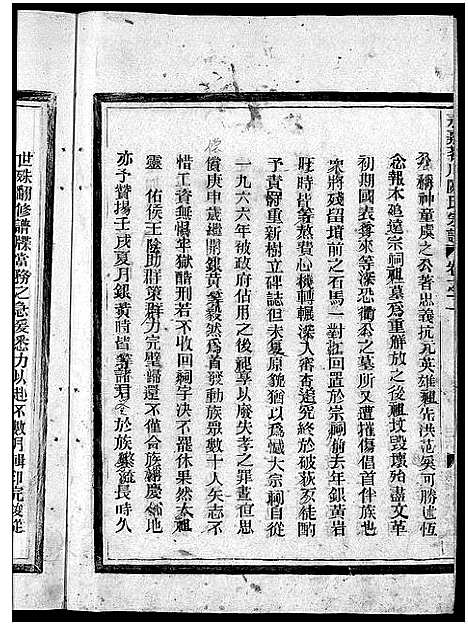 公稱神童虞之公著忠義抗元英雄祖先洪范奚可勝述恆
念報本追遠宗祠祖墓爲重解放之後祖坟毀壞殆盡文革
初期國表尊來等深恐衝丕之墓所又遭摧傷倡首伴族也
眾將殘留墳前之石馬一對扛回置於宗祠前去年銀黃岩
旺時皆等熬費心機輾轉深入審查追究終於破荻丕徒酌
予賞重新樹立碑誌但未復原貌猶以爲憾大宗祠自從
一九六六年被政府佔用之後祀享以廢失孝之罪晝但思
償庚申歲繼開銀黃等毅然爲首族眾數十人矢志不
惜工資無懼牢獄酷刑若不收回祠宇決不罷休果然太祖
靈佑侯王陰助群策群力完璧歸還不僅合族歡慶鄉地
亦予贊揚壬戌夏月銀黃時皆等諸君念於族繁流長時久
世殊翻修譜牒當務之急爰悉力以赴不數月